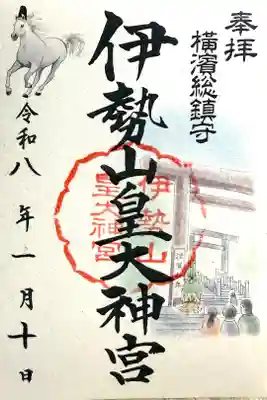 奉拝
横濱総鎮守
伊勢山皇大神宮
伊勢山
皇大神宮
令和八年一月十日